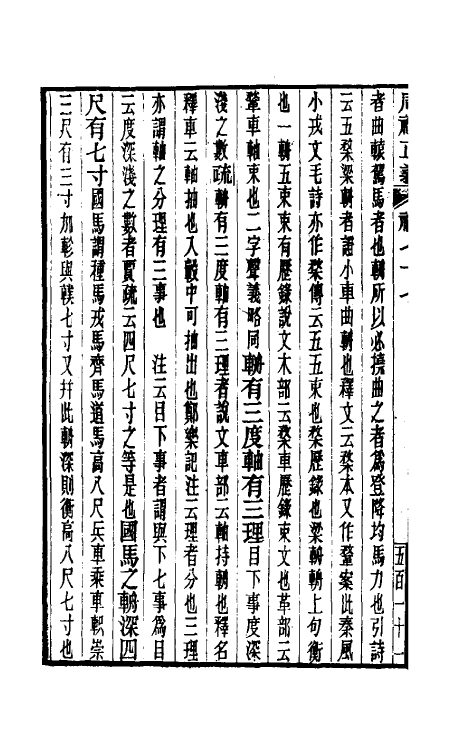 周禮正義 禮七十七
者曲轅駕馬者也輈所以必撓曲之者爲登降均馬力也引詩
云五楘梁輈者證小車曲輈也釋文云楘本又作鞪案此秦風
小戎文毛詩亦作楘傳云五五束也楘歷錄也梁輈輈上句衡
也一輈五束束有歷錄說文木部云楘車歷錄束文也革部云
鞪車軸束也二字聲義略同輈有三度軸有三理目下事度深
淺之數疏輈有三度軸有三理者說文車部云軸持輪也釋名
釋車云軸抽也入轂中可抽出也鄭樂記注云理者分也三理
亦謂軸之分理有三事也 注云目下事者謂與下七事爲目
云度深淺之數者賈疏云四尺七寸之等是也國馬之輈深四
尺有七寸國馬謂種馬戎馬齊馬道馬高八尺兵車乘車軹崇
三尺有三寸加軫與轐七寸又幷此輈深則衡高八尺七寸也